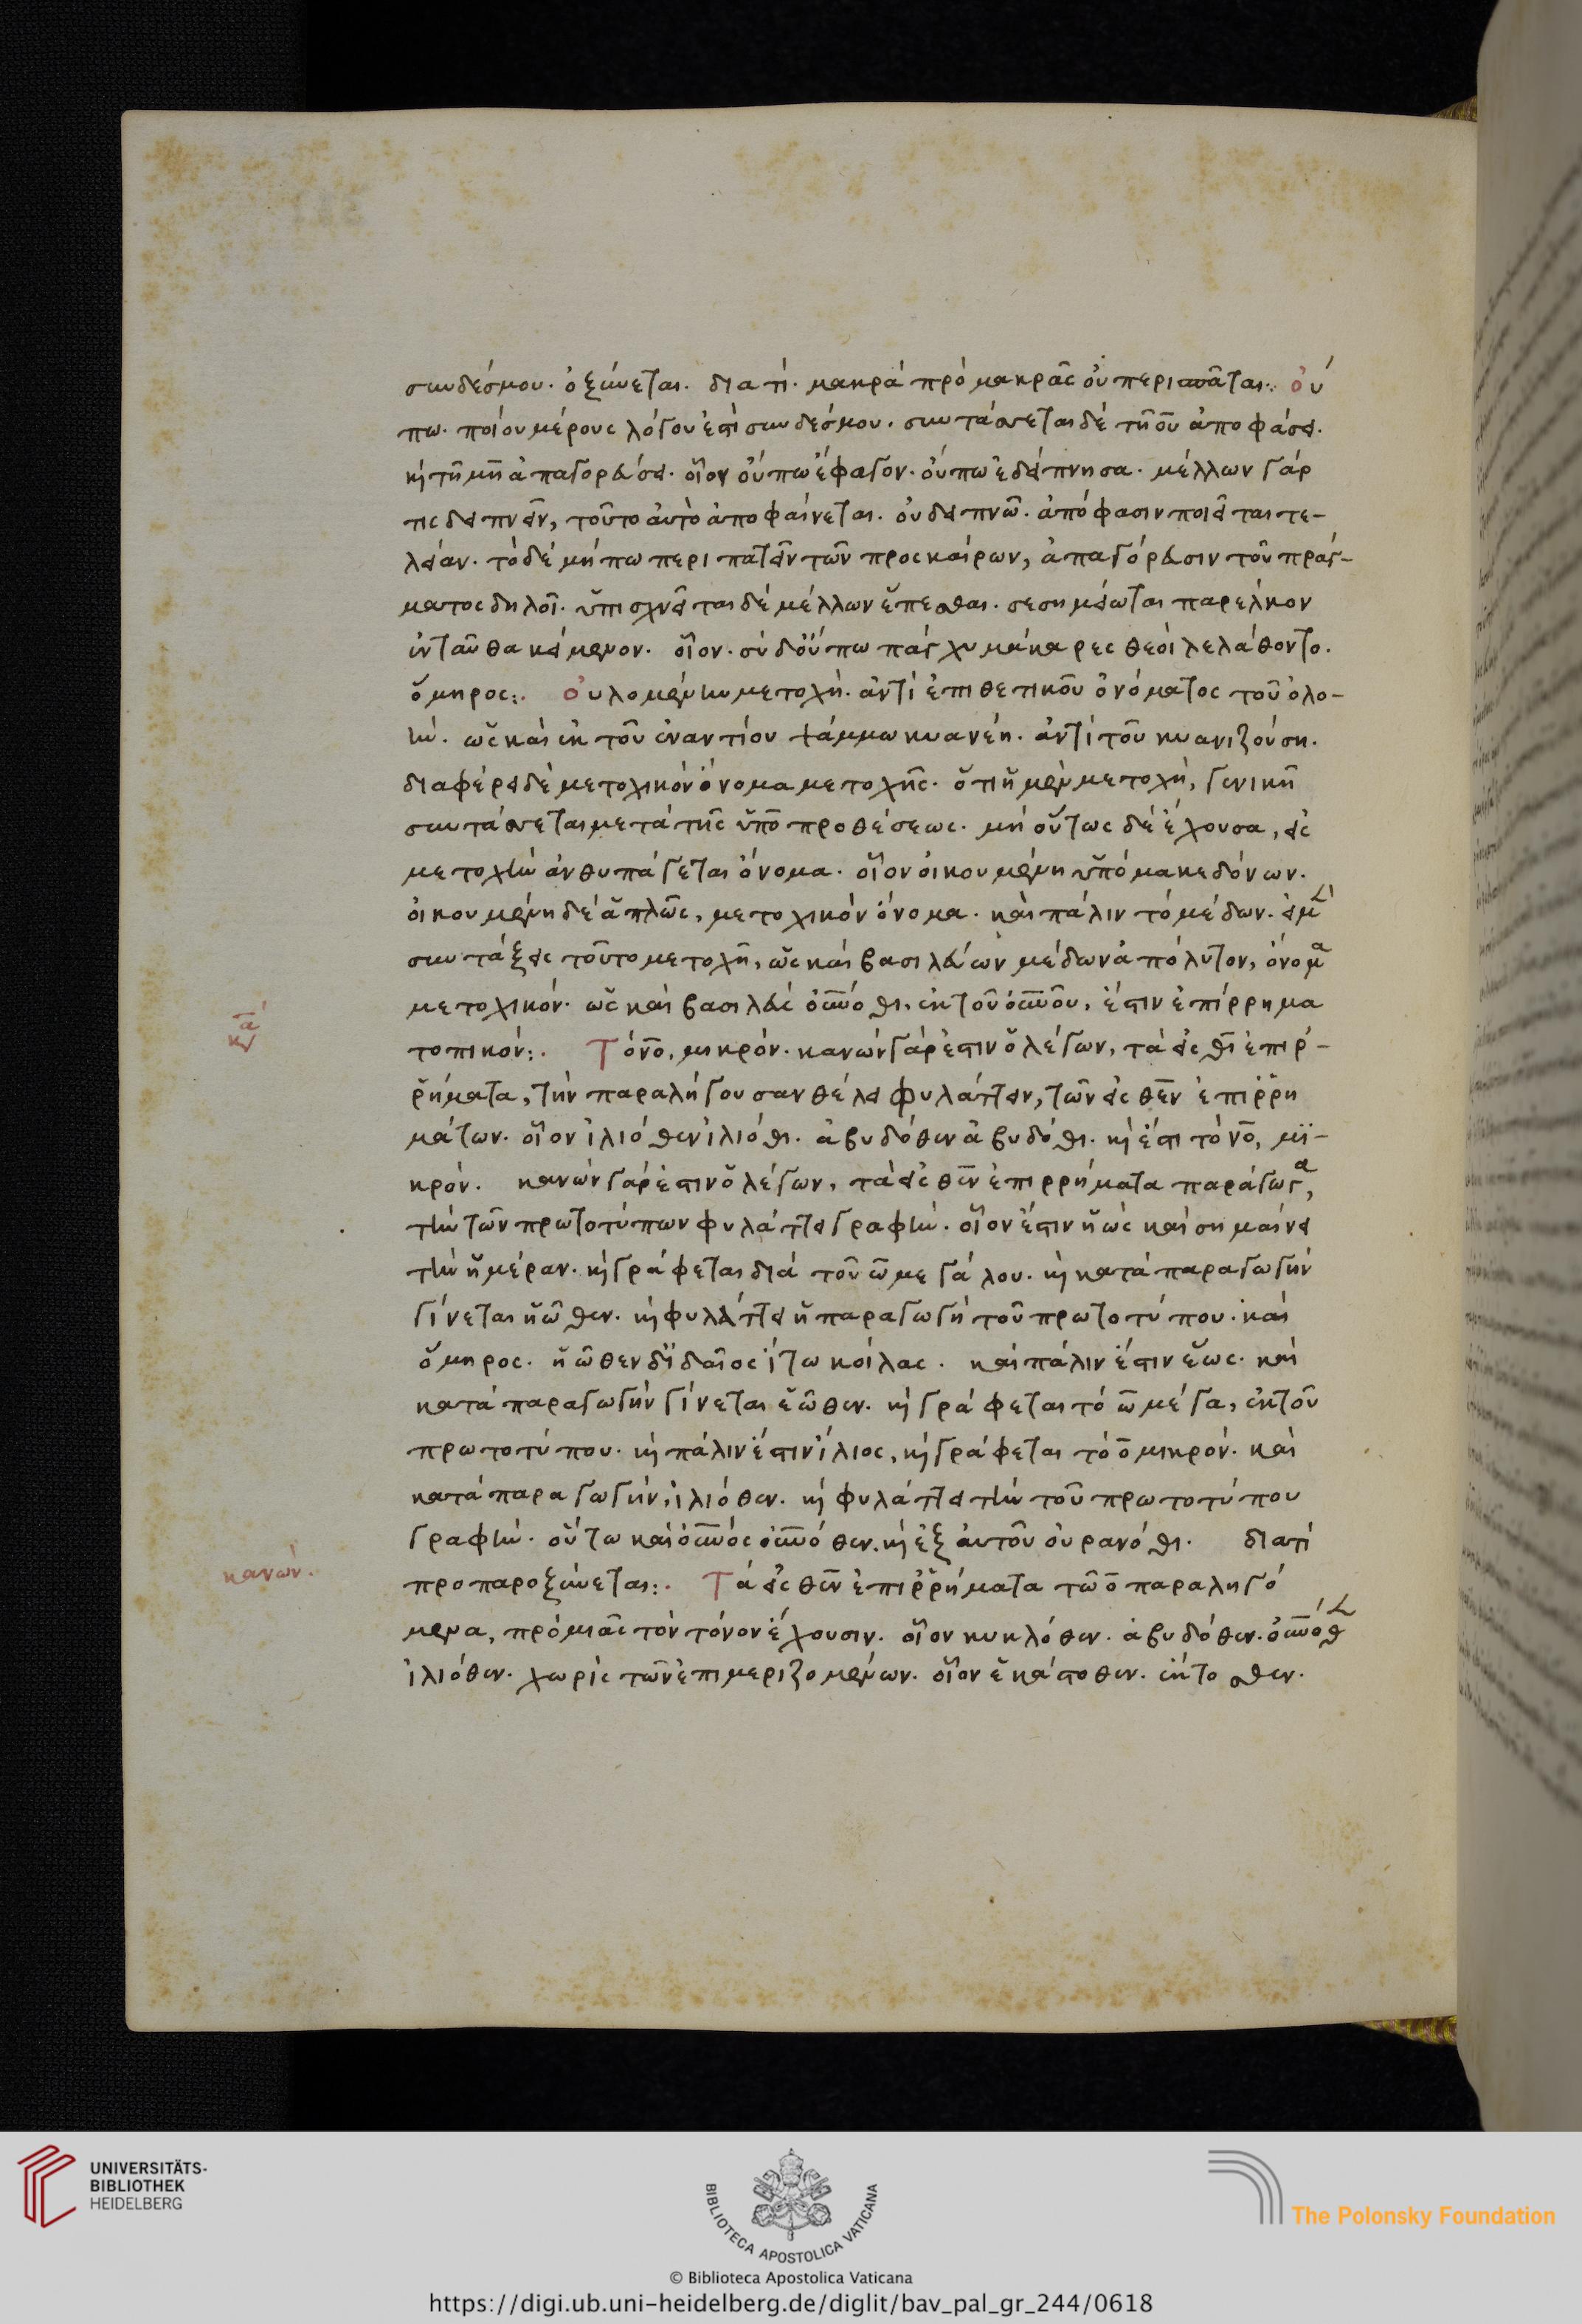 συνδέσμου. ὀξύνεται. διατί. μακρά πρό μακρᾶς οὐ περισπᾶται:. οὔ
πω. ποίου μέρους λόγου ἐστί συνδέσμου. συντάσσεται δέ τῆ οὐ ἀποφάσει.
κὶ τῆ μὴ ἀπαγορεύσει. οἷον οὔπω ἔφαγον. οὔπω ἐδείπνησα. μέλλων γάρ
τις δειπνεῖν, τοῦτο αὐτὸ ἀποφαίνεται. οὐ δειπνῶ. ἀπόφασιν ποιεῖται τε-
λείαν. τὸ δέ μήπω περιπατεῖν τῶν προσκαίρων, ἀπαγόρευσιν τοῦ πράγ-
ματος δηλοῖ. ὑπισχνεῖται δέ μέλλων ἕπεσθαι. σεσημείωται παρέλκον
ἐνταῦθα κείμενον. οἷον. οὐδ' οὔπω πάγχυ μάκαρες θεοί λελάθοντο.
ὅμηρος:. Οὐλομένην μετοχή. ἀντί ἐπιθετικοῦ ὀνόματος τοῦ ὀλο-
ήν. ὡς καί ἐκ τοῦ ἐναντίου ψάμμω κυανέη. ἀντί τοῦ κυανιζούση.
διαφέρει δέ μετοχικόν ὄνομα μετοχῆς. ὅτι ἡ μέν μετοχή, γενικῆ
συντάσσεται μετά τῆς ὑπό προθέσεως. μή οὕτως δέ ἔχουσα, εἰς
μετοχήν ἀνθυπάγεται ὄνομα. οἷον οἰκουμένη ὑπό μακεδόνων.
οἰκουμένη δέ ἁπλῶς, μετοχικόν ὄνομα. καί πάλιν τό μέδων. εἰ μὲν
συντάξεις τοῦτο μετοχῆ, ὡς καί βασιλεύων μέδων ἀπόλυτον, ὄνομα
μετοχικόν. ὡς καί βασιλεύς οὐνόθι. ἐκ τοῦ οὐνοῦ, ἔστιν ἐπίρρημα
τοπικόν:. Τό νο, μικρόν. κανών γάρ ἐστιν ὁ λέγων, τά εἰς θι ἐπιρ-
ρήματα, τήν παραλήγουσαν θέλει φυλάττειν, τῶν εἰς θεν ἐπιρρη
μάτων. οἷον ἰλιόθεν ἰλιόθι. ἀβυδόθεν ἀβυδόθι. κὶ ἔστι τό νο, μι-
κρόν. κανών γάρ ἐστιν ὁ λέγων, τά εἰς θεν ἐπιρρήματα παράγωγα,
τήν τῶν πρωτοτύπων φυλάττει γραφήν. οἷον ἔστιν ἠώς καί σημαίνει
τήν ἡμέραν. κὶ γράφεται διά τοῦ ω μεγάλου. κὶ κατά παραγωγήν
γίνεται ἠῶθεν. κὶ φυλάττει ἡ παραγωγή τοῦ πρωτοτύπου. καί
ὅμηρος. ἠῶθεν δ' ἰδαῖος ἴτω κοίλας. καί πάλιν ἔστιν ἕως. καί
κατά παραγωγήν γίνεται ἑῶθεν. κὶ γράφεται τό ω μέγα, ἐκ τοῦ
πρωτοτύπου. κὶ πάλιν ἔστιν ἴλιος, κὶ γράφεται τό ο μικρόν. καί
κατά παραγωγήν, ἰλιόθεν. κὶ φυλάττει τήν τοῦ πρωτοτύπου
γραφήν. οὕτω καί οὐνός οὐνόθεν. κὶ ἐξ αὐτοῦ οὐρανόθι. διατί
κανών.
προπαροξύνεται:. Τά εἰς θεν ἐπιρρήματα τῶ ο παραληγό
μενα, πρό μιᾶς τόν τόνον ἔχουσιν. οἷον κυκλόθεν. ἀβυδόθεν. οὐνόθεν
ἰλιόθεν. χωρίς τῶν ἐπιμεριζομένων. οἷον ἑκάστοθεν. ἔκτοσθεν.
UNIVERSITÄTS-
BIBLIOTHEK
HEIDELBERG
BIBLIOTECA APOSTOLICA VATICANA
The Polonsky Foundation
© Biblioteca Apostolica Vaticana
https://digi.ub.uni-heidelberg.de/diglit/bav_pal_gr_244/0618